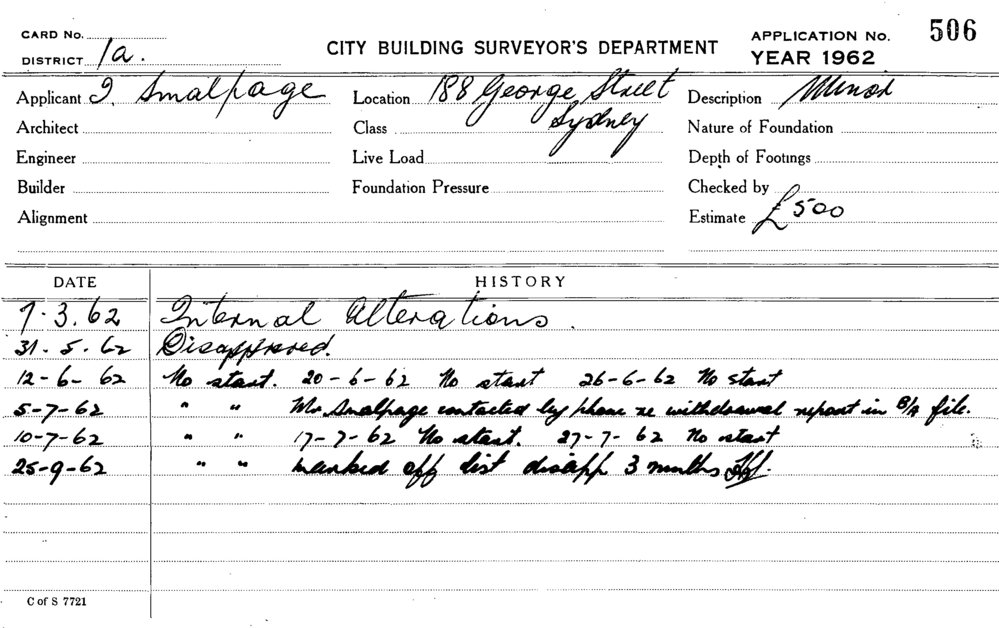 CARD No.
DISTRICT 1a.
CITY BUILDING SURVEYOR'S DEPARTMENT
APPLICATION No. 506
YEAR 1962
Applicant I. Smalpage
Location 188 George Street
Sydney
Description Minor
Architect
Class
Nature of Foundation
Engineer
Live Load
Depth of Footings
Builder
Foundation Pressure
Checked by
Alignment
Estimate £500
DATE HISTORY
7.3.62 Internal Alterations.
31-5-62 Disapproved.
12-6-62 No start. 20-6-62 No start 26-6-62 No start
5-7-62 " " Mr. Smalpage contacted by phone re withdrawal report in B/A file.
10-7-62 " " 17-7-62 No start. 27-7-62 No start
25-9-62 " " marked off list disapp 3 months
C of S 7721